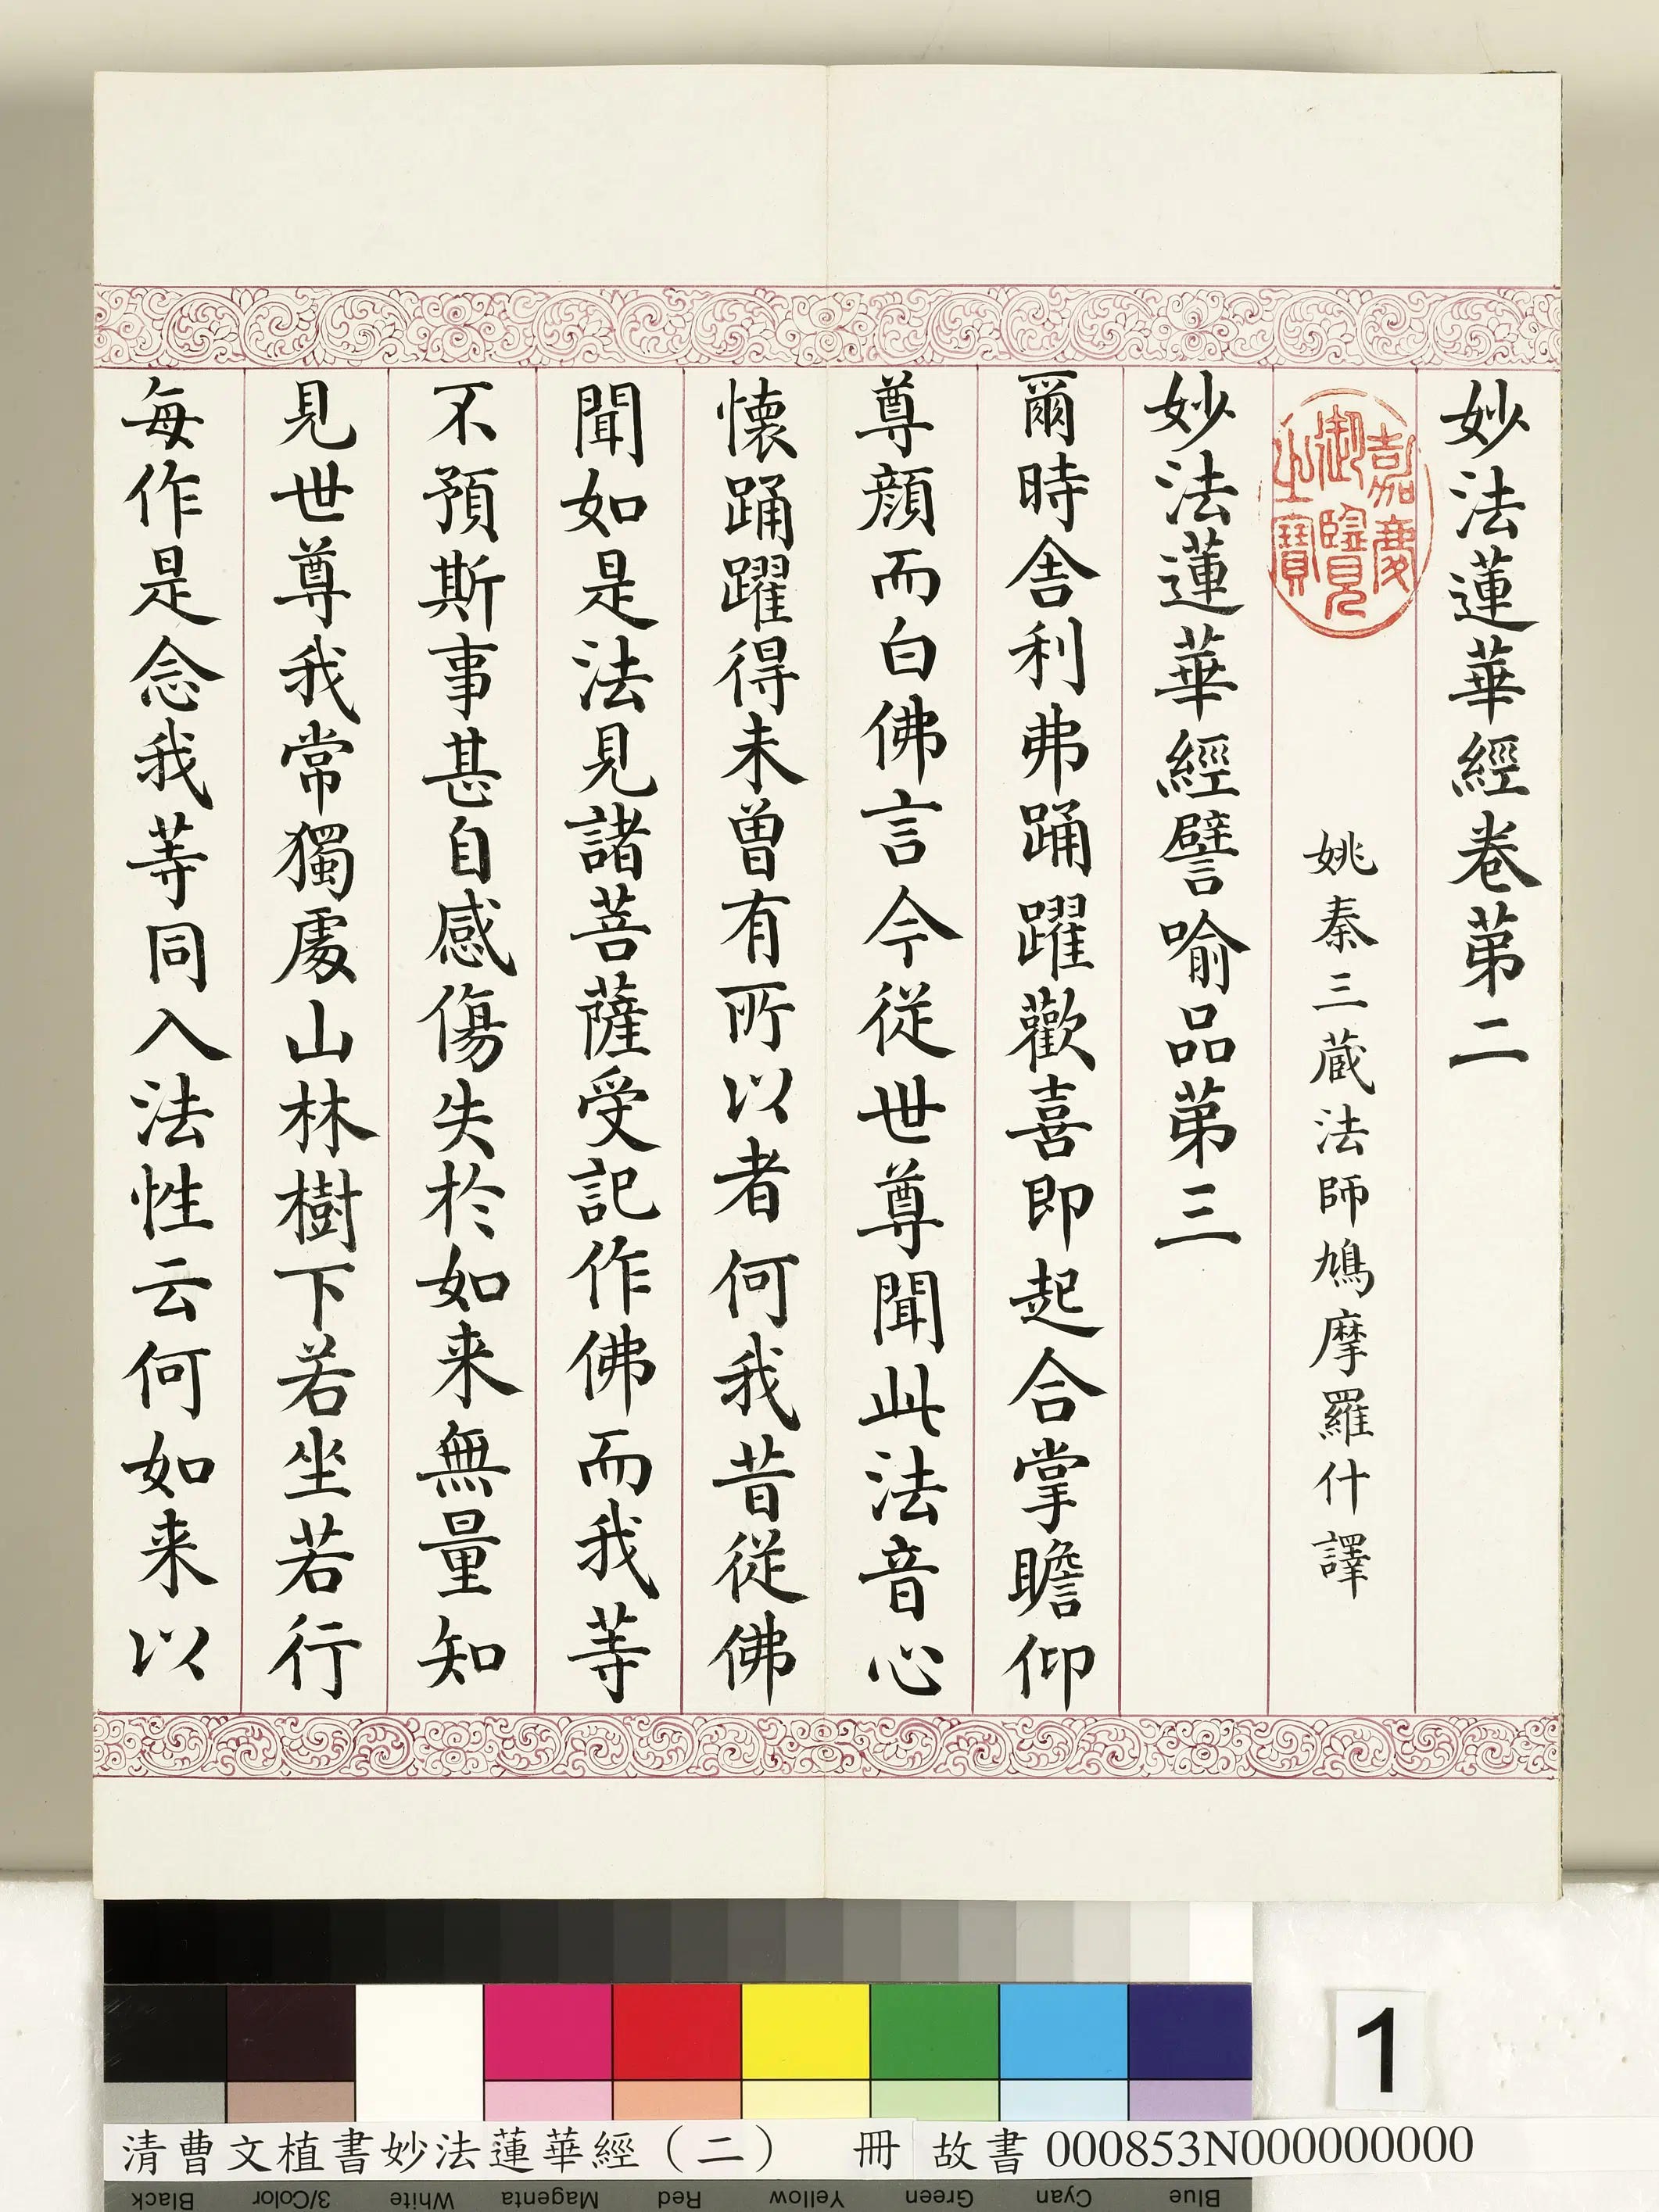 妙法蓮華經卷苐二
嘉慶御覽之寶
姚秦三藏法師鳩摩羅什譯
妙法蓮華經譬喻品苐三
爾時舍利弗踊躍歡喜即起合掌瞻仰
尊顏而白佛言今從世尊聞此法音心
懷踊躍得未曾有所以者何我昔從佛
聞如是法見諸菩薩受記作佛而我等
不預斯事甚自感傷失於如来無量知
見世尊我常獨處山林樹下若坐若行
每作是念我等同入法性云何如来以
1
清曹文植書妙法蓮華經（二） 冊 故書000853N000000000
Black 3/Color White Magenta Red Yellow Green Cyan Blue